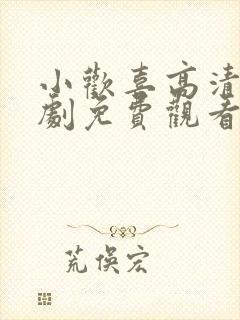 小歡喜高清
劇免費觀看
荒俁宏